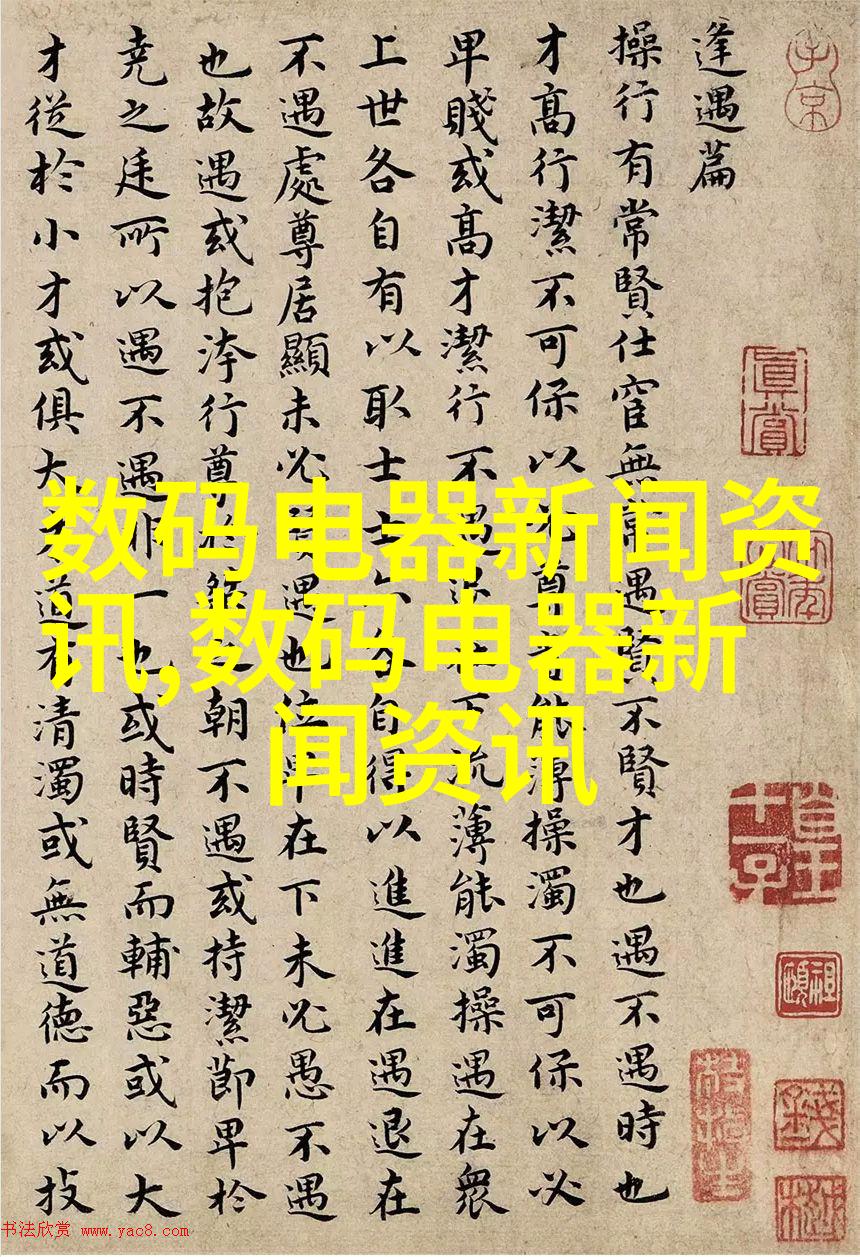 逢遇篇
操行有常賢仕宦無常遇賢不賢才也遇不遇時也
才高行潔不可保以必尊貴能薄操濁不可保以必
卑賤或高才潔行不遇退在下流薄能濁操遇在衆
上世各自有以取士士亦各自得以進進在遇退在
不遇處尊居顯未必賢遇也位卑在下未必愚不遇
也故遇或抱洿行尊於桀之朝不遇或持潔節卑於
堯之廷所以遇不遇非一也或時賢而輔惡或以大
才從於小才或俱大才道有清濁或無道德而以技
子京
真賞
数码电器新闻资
讯,数码电器新
闻资讯
书法欣赏 www.yac8.com